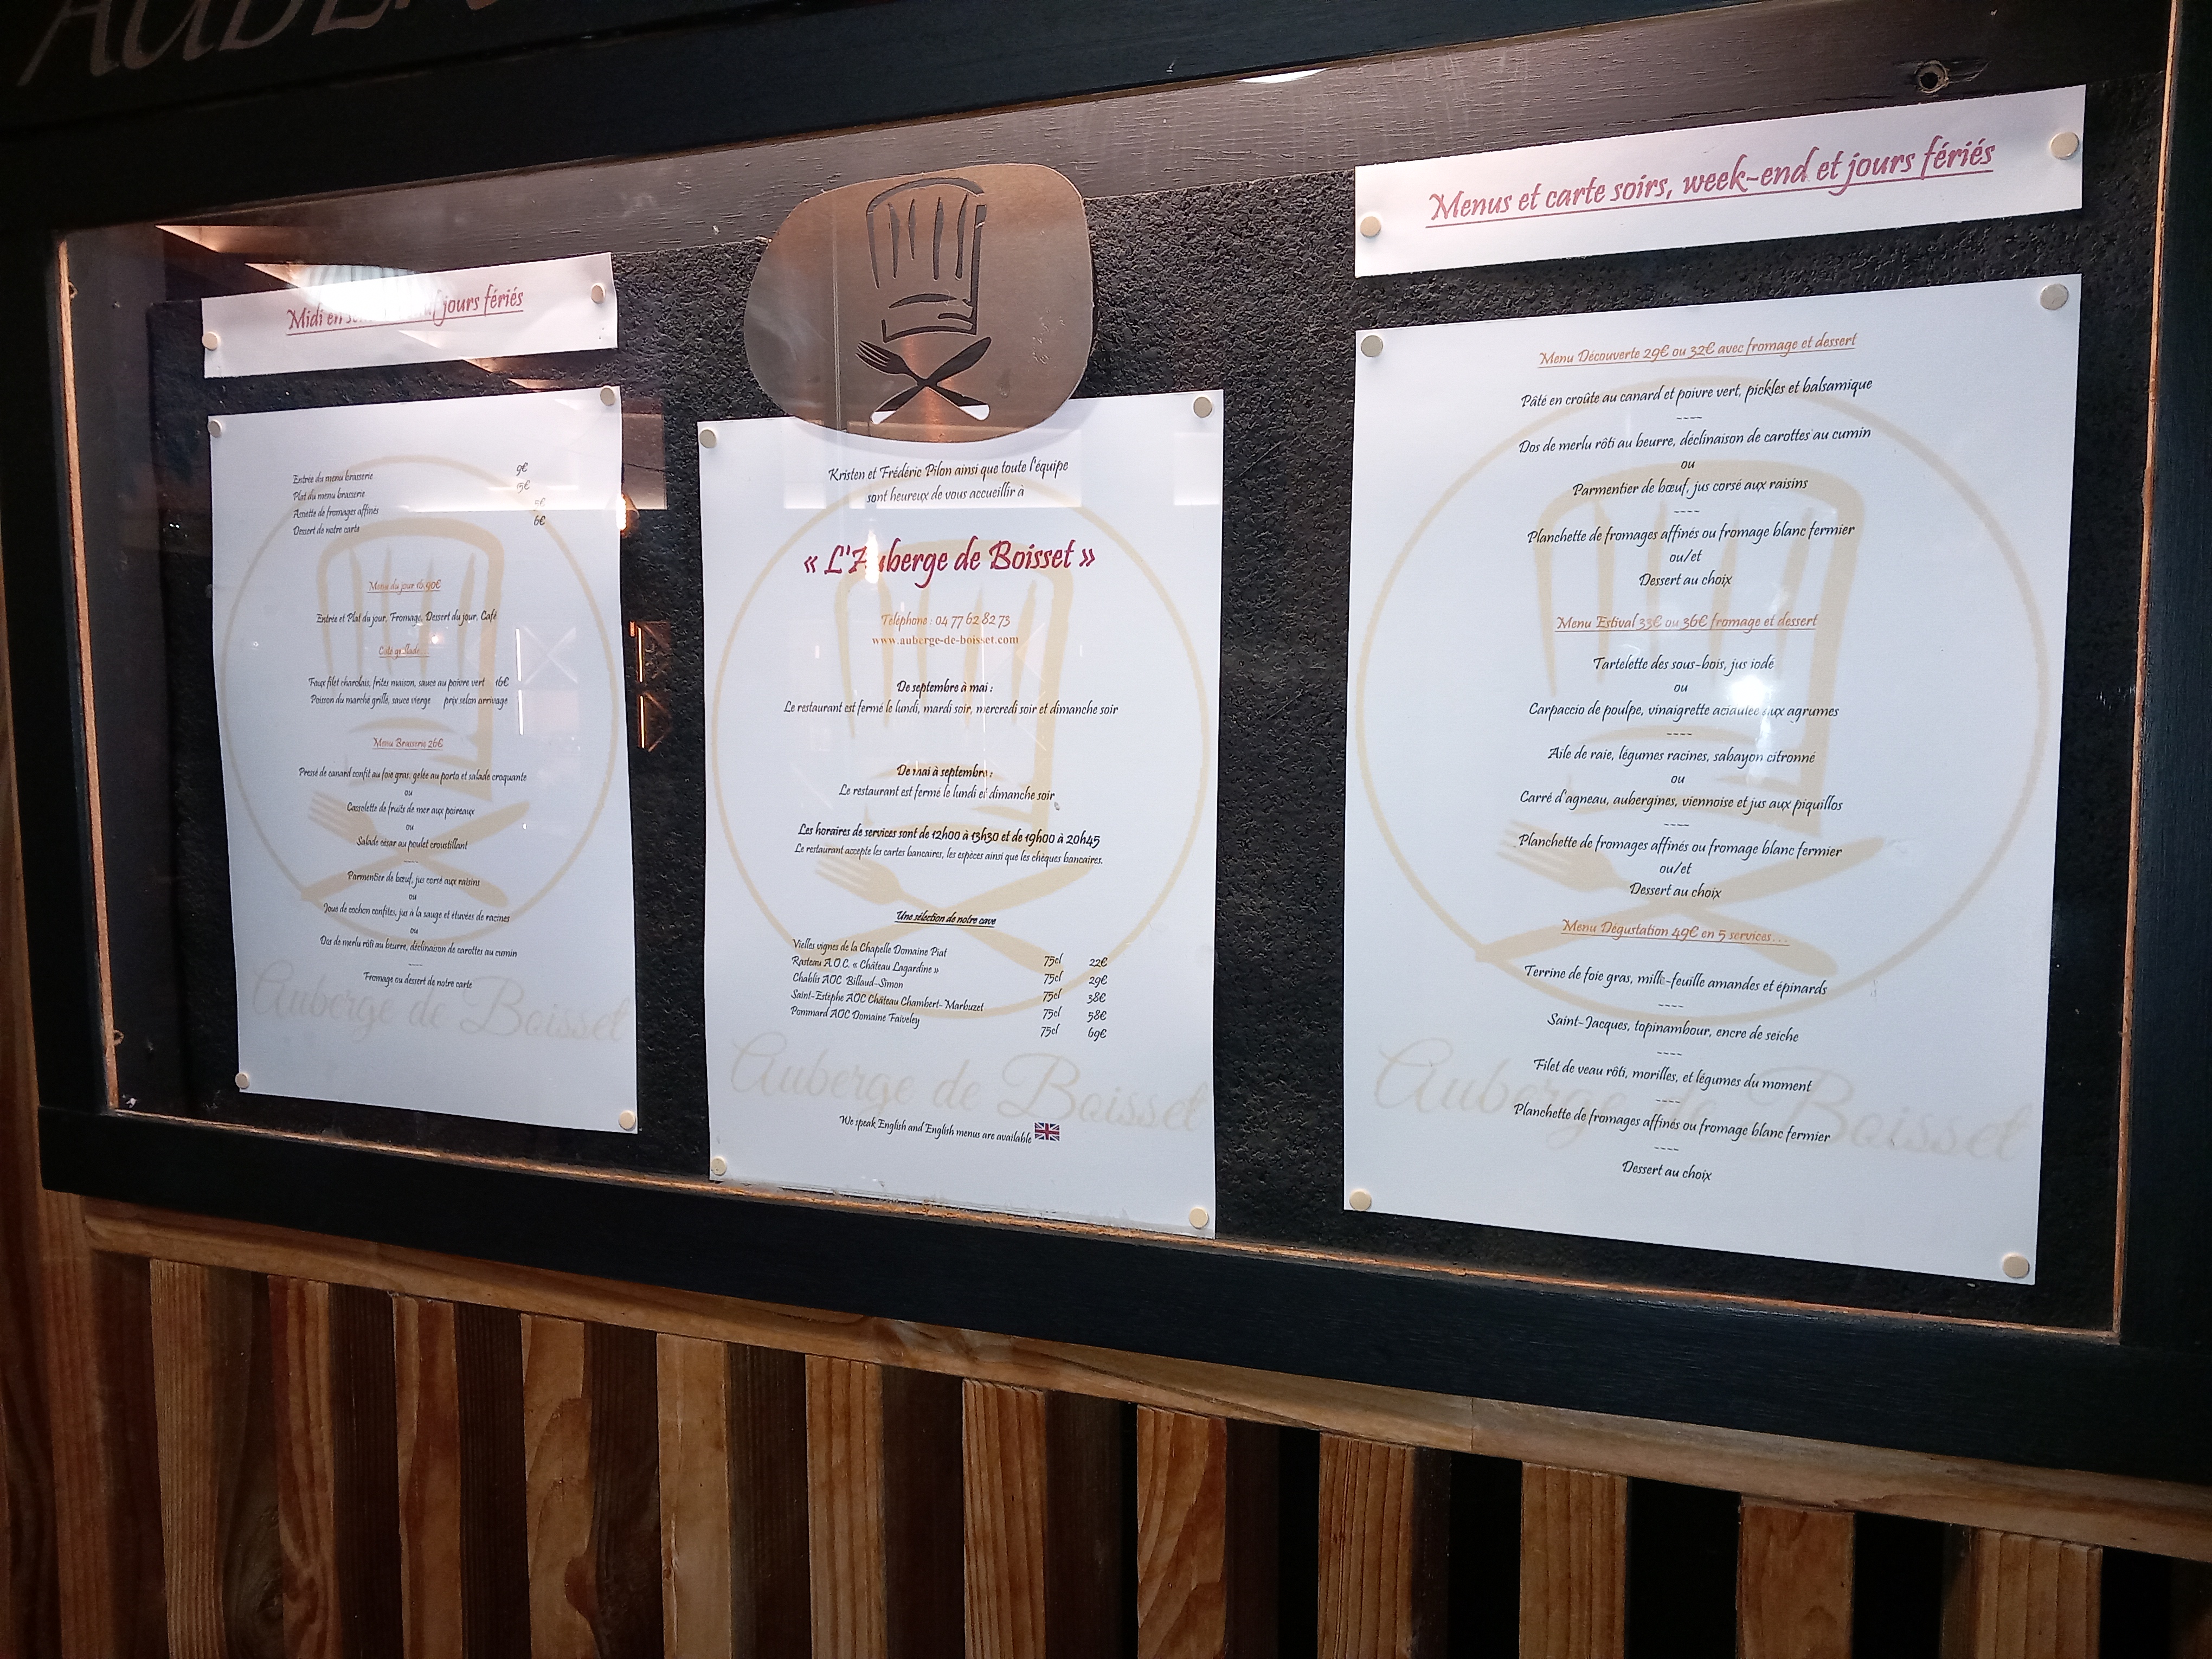 Midi en jours fériés
Entrée du menu brasserie 9€
Plat du menu brasserie 15€
Assiette de fromages affinés
Dessert de notre carte 6€
Menu du jour
Entrée et Plat du jour, Fromage, Dessert du jour, Café
Faux filet charolais, frites maison, sauce au poivre vert 16€
Poisson du marché grillé, sauce vierge prix selon arrivage
Menu Brasserie 26€
Pressé de canard confit au foie gras, gelée au porto et salade croquante
ou
Cassolette de fruits de mer aux poireaux
ou
Salade césar au poulet croustillant
----
Parmentier de bœuf, jus corsé aux raisins
ou
Joue de cochon confites, jus à la sauge et étuvées de racines
ou
Dos de merlu rôti au beurre, déclinaison de carottes au cumin
----
Fromage ou dessert de notre carte
Auberge de Boisset
Kristen et Frédéric Pilon ainsi que toute l'équipe
sont heureux de vous accueillir à
« L'Auberge de Boisset »
Téléphone : 04 77 62 82 73
www.auberge-de-boisset.com
De septembre à mai :
Le restaurant est fermé le lundi, mardi soir, mercredi soir et dimanche soir
De mai à septembre :
Le restaurant est fermé le lundi et dimanche soir
Les horaires de services sont de 12h00 à 13h30 et de 19h00 à 20h45
Le restaurant accepte les cartes bancaires, les espèces ainsi que les chèques bancaires.
Une sélection de notre cave
Vielles vignes de la Chapelle Domaine Piat 75cl 22€
Rasteau A.O.C. « Château Lagardine » 75cl 29€
Chablis AOC Billaud-Simon 75cl 38€
Saint-Estèphe AOC Château Chambert-Marbuzet 75cl 58€
Pommard AOC Domaine Faiveley 75cl 69€
Auberge de Boisset
We speak English and English menus are available
Menus et carte soirs, week-end et jours fériés
Menu Découverte 29€ ou 32€ avec fromage et dessert
Pâté en croûte au canard et poivre vert, pickles et balsamique
----
Dos de merlu rôti au beurre, déclinaison de carottes au cumin
ou
Parmentier de bœuf, jus corsé aux raisins
----
Planchette de fromages affinés ou fromage blanc fermier
ou/et
Dessert au choix
Menu Estival 33€ ou 36€ fromage et dessert
Tartelette des sous-bois, jus iodé
ou
Carpaccio de poulpe, vinaigrette acidulée aux agrumes
----
Aile de raie, légumes racines, sabayon citronné
ou
Carré d'agneau, aubergines, viennoise et jus aux piquillos
----
Planchette de fromages affinés ou fromage blanc fermier
ou/et
Dessert au choix
Menu Dégustation 49€ en 5 services...
Terrine de foie gras, mille-feuille amandes et épinards
----
Saint-Jacques, topinambour, encre de seiche
----
Filet de veau rôti, morilles, et légumes du moment
----
Planchette de fromages affinés ou fromage blanc fermier
----
Dessert au choix
Auberge de Boisset